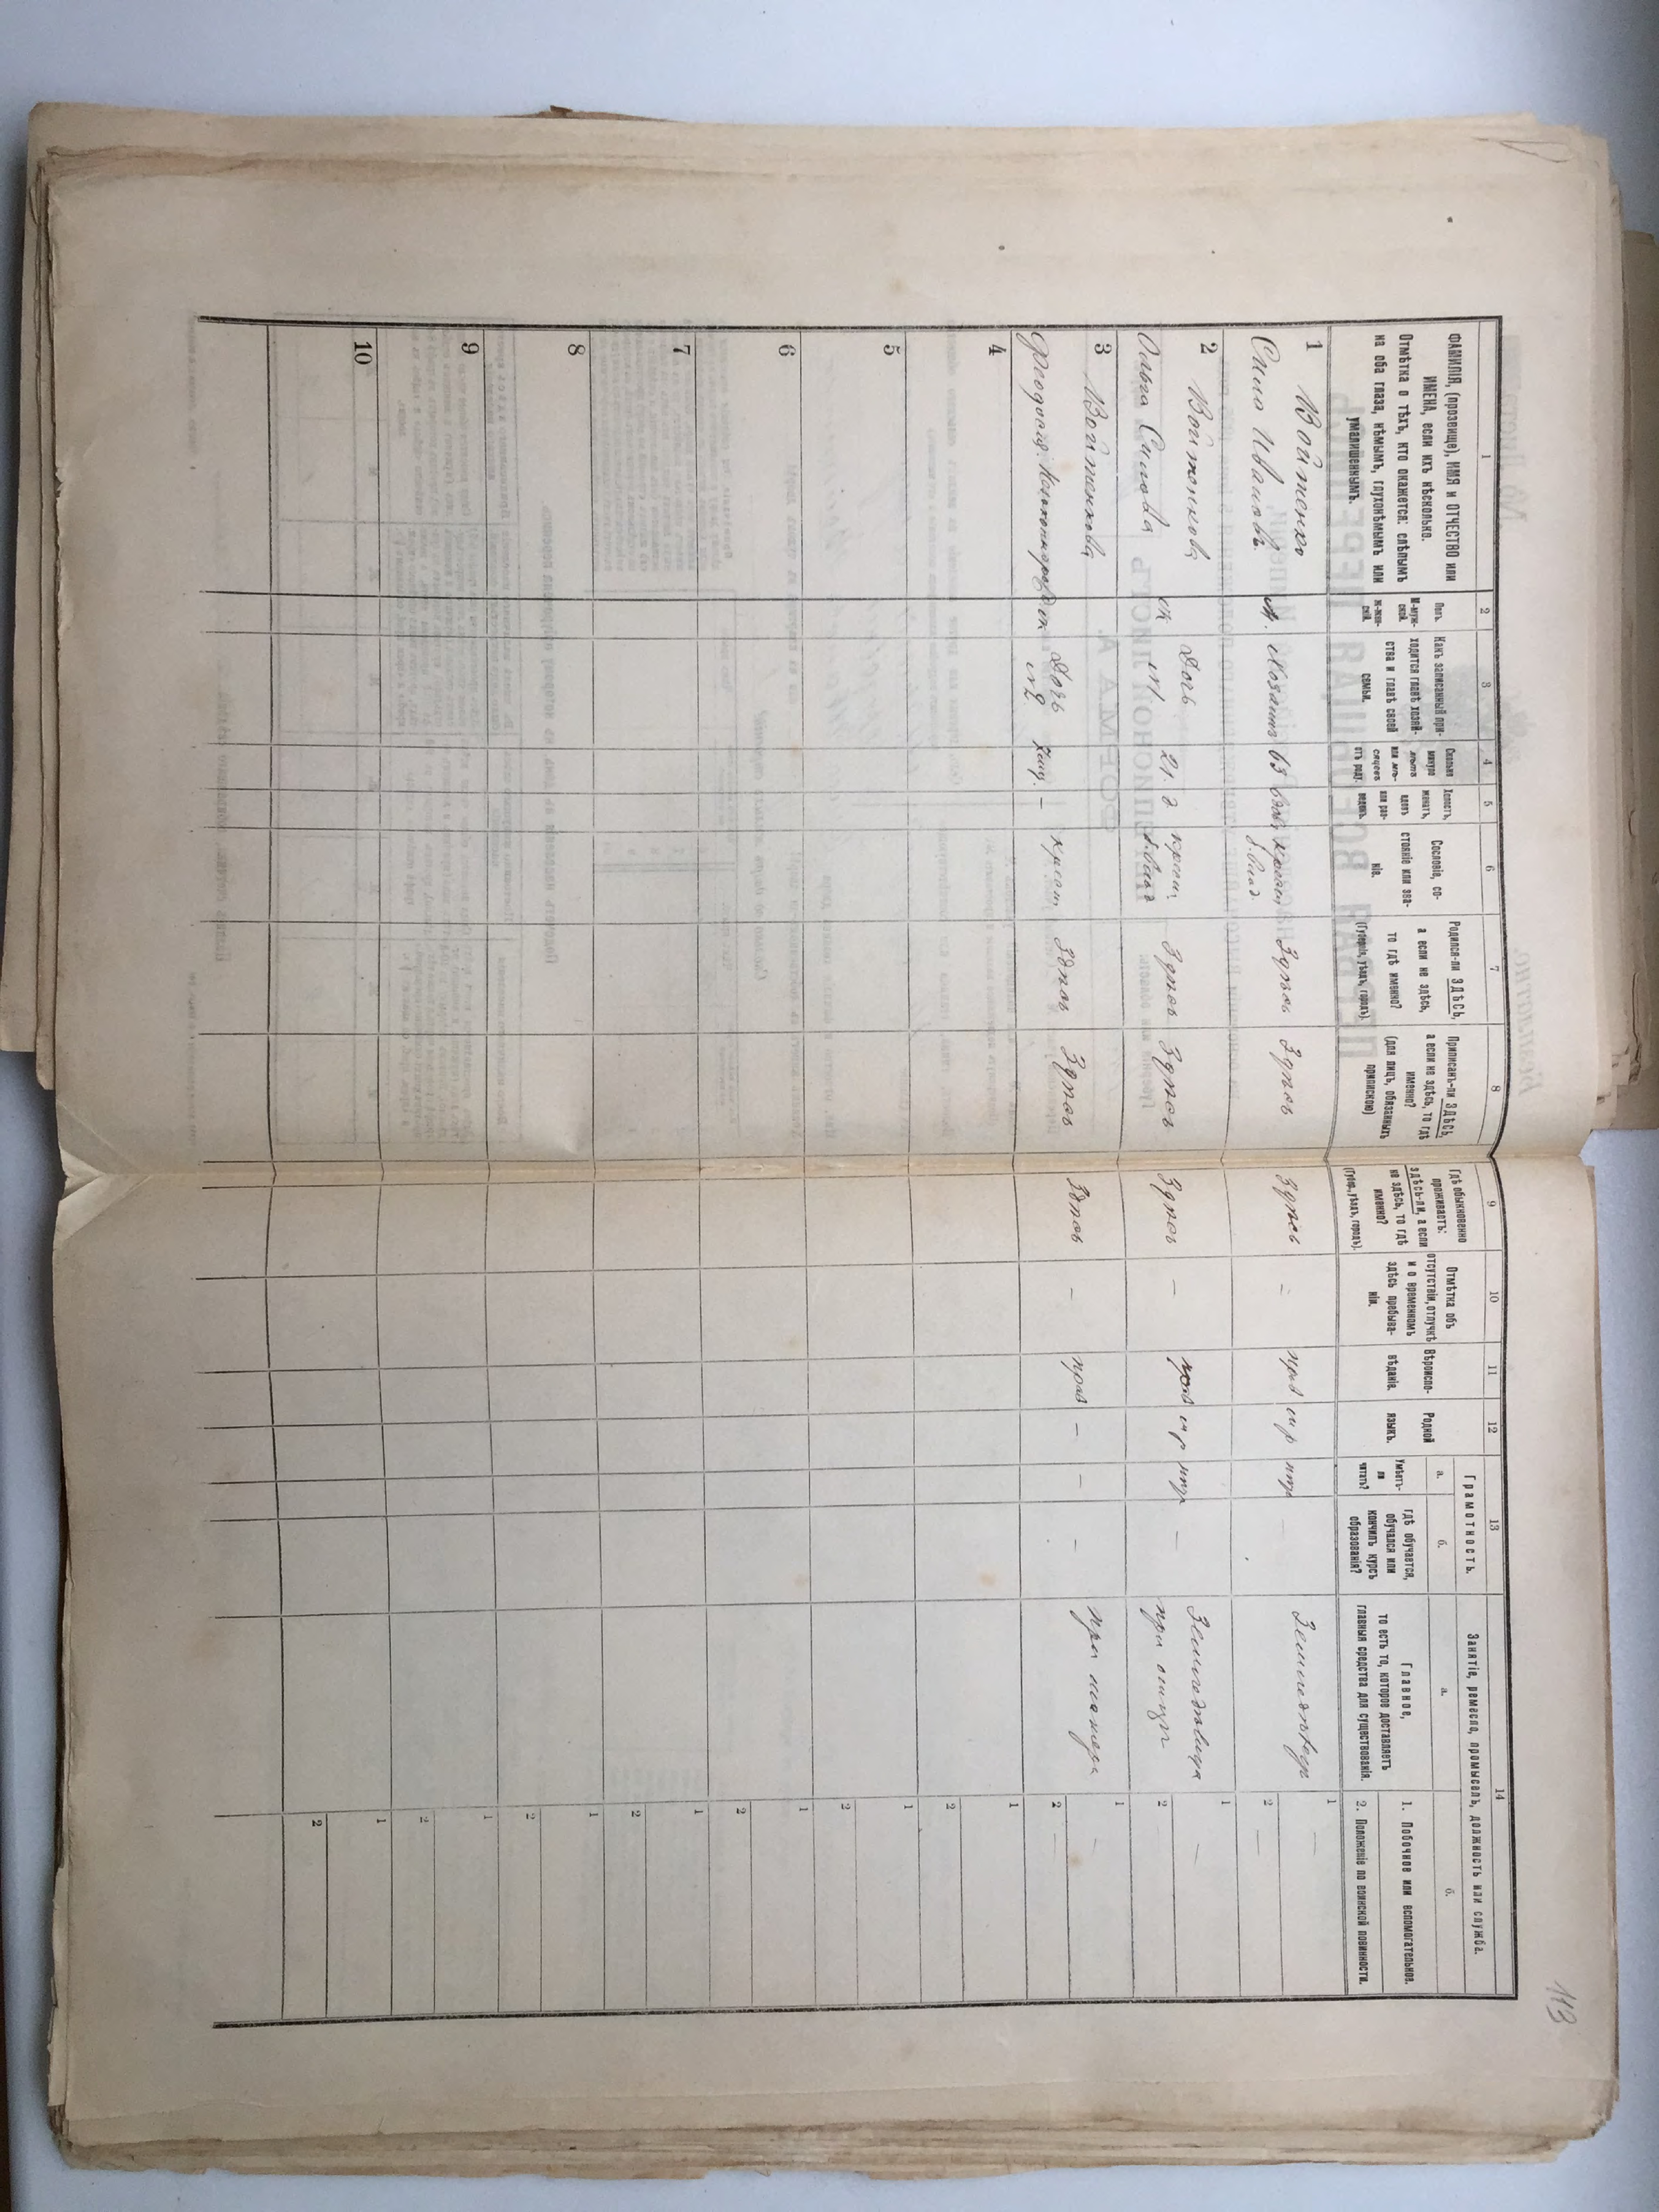 113
1
ФАМИЛІЯ, (прозвище), ИМЯ и ОТЧЕСТВО или
ИМЕНА, если ихъ нѣсколько.
Отмѣтка о тѣхъ, кто окажется: слѣпымъ
на оба глаза, нѣмымъ, глухонѣмымъ или
умалишеннымъ.
2
Полъ.
М-муж-
ской.
Ж-жен-
скій.
3
Какъ записанный при-
ходится главѣ хозяй-
ства и главѣ своей
семьи.
4
Сколько
минуло
лѣтъ
или мѣ-
сяцевъ
отъ роду.
5
Холостъ,
женатъ,
вдовъ
или раз-
веденъ.
6
Сословіе, со-
стояніе или зва-
ніе.
7
Родился-ли ЗДѢСЬ,
а если не здѣсь,
то гдѣ именно?
(Губернія, уѣздъ, городъ).
8
Приписанъ-ли ЗДѢСЬ,
а если не здѣсь, то гдѣ
именно?
(для лицъ, обязанныхъ
припискою)
9
Гдѣ обыкновенно
проживаетъ:
здѣсь-ли, а если
не здѣсь, то гдѣ
именно?
(Губер., уѣздъ, городъ).
10
Отмѣтка объ
отсутствіи, отлучкѣ
и о временномъ
здѣсь пребыва-
ніи.
11
Вѣроиспо-
вѣданіе.
12
Родной
языкъ.
13
Грамотность.
а.
Умѣетъ-
ли
читать?
б.
гдѣ обучается,
обучался или
кончилъ курсъ
образованія?
14
Занятіе, ремесло, промыселъ, должность или служба.
а.
Главное,
то есть то, которое доставляетъ
главныя средства для существованія.
б.
1. Побочное или вспомогательное.
2. Положеніе по воинской повинности.
1 Войтенко
Сила Ивановъ М. Хозяинъ 63 вдов. Здѣсь Здѣсь Здѣсь – прав м р Земледѣлецъ 1 –
2 –
2 Войтенкова
Ольга Силова ж Дочь 21 д крест Здѣсь Здѣсь Здѣсь – прав м р – Земледѣлица 1 –
при отцѣ 2
3 Войтенкова
Феодосія ж Дочь – крест Здѣсь Здѣсь Здѣсь – прав – – – при матери 1 –
№2 2 –
4 1
2
5 1
2
6 1
2
7 1
2
8 1
2
9 1
2
10 1
2